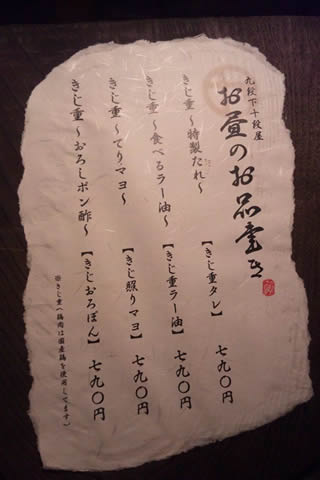 九段下十段屋
お昼のお品書き
きじ重～特製たれ～【きじ重タレ】七九〇円
きじ重～食べるラー油～【きじ重ラー油】七九〇円
きじ重～てりマヨ～【きじ照りマヨ】七九〇円
きじ重～おろしポン酢～【きじおろぽん】七九〇円
※きじ重（鶏肉は国産鶏を使用してます）